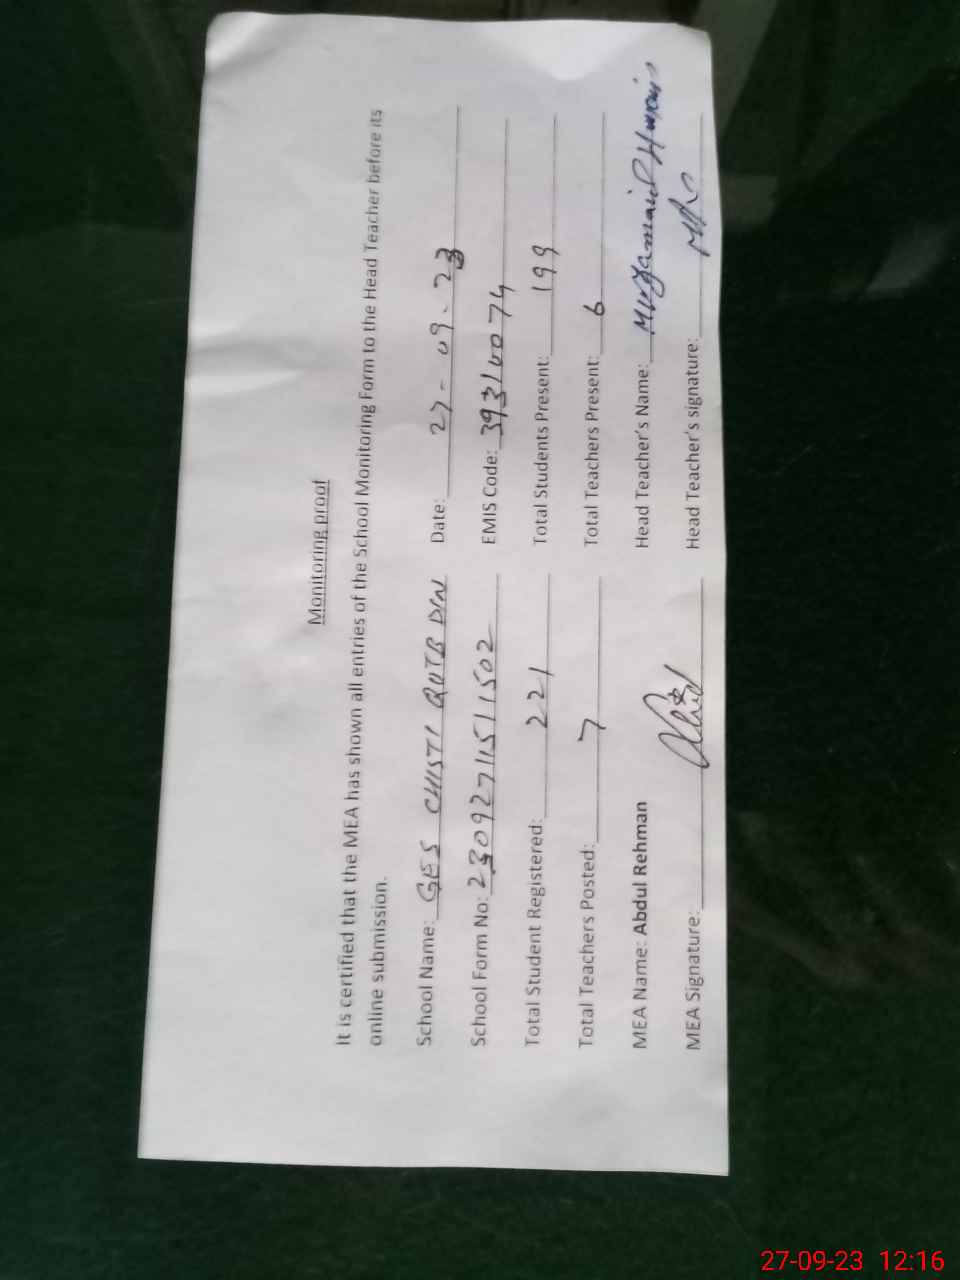 Monitoring proof
It is certified that the MEA has shown all entries of the School Monitoring Form to the Head Teacher before its
online submission.
School Name: GES CHISTI QUTB DIN Date: 27-09-23
School Form No: 230927115511502 EMIS Code: 39310074
Total Student Registered: 221 Total Students Present: 199
Total Teachers Posted: 7 Total Teachers Present: 6
MEA Name: Abdul Rehman Head Teacher's Name:
MEA Signature: Head Teacher's signature:
27-09-23 12:16